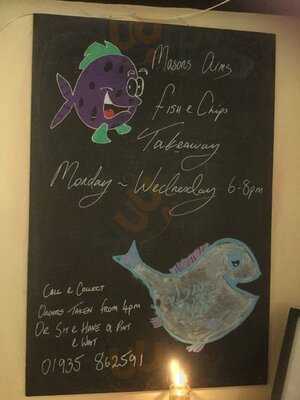 Masons Arms
Fish & Chips
Takeaway
Monday ~ Wednesday 6-8pm
Call & Collect
Orders Taken from 4pm
Or Sit & Have a Pint
& Wait
01935 862591